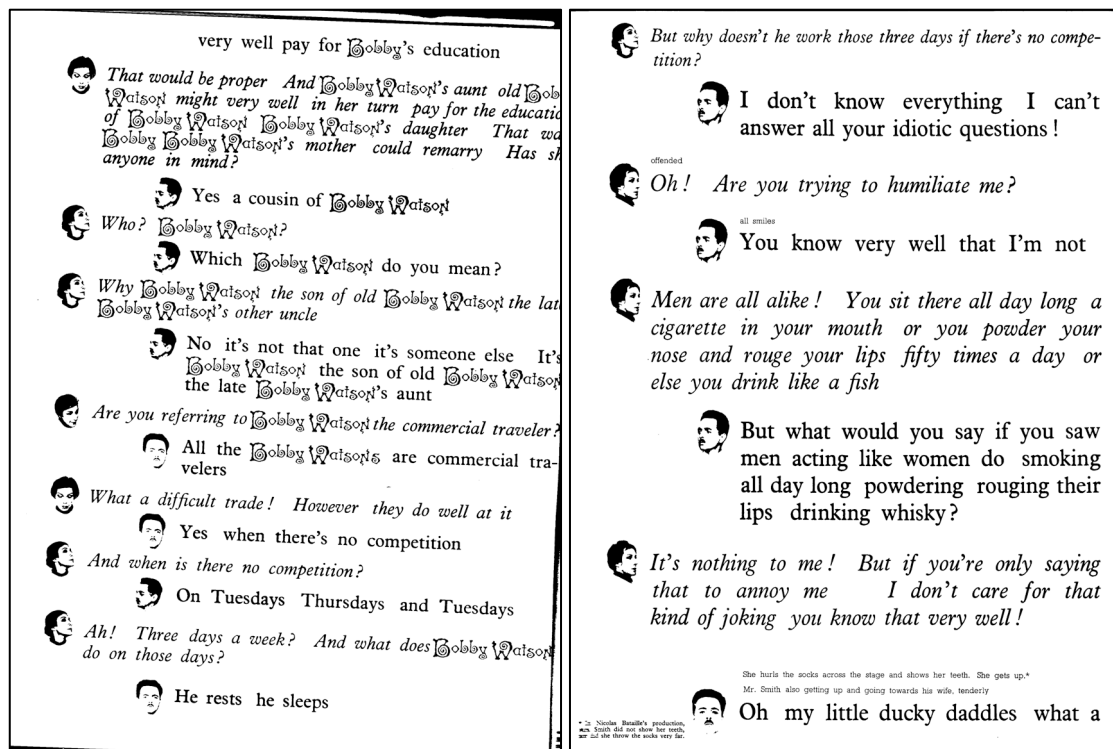 very well pay for Bobby's education
That would be proper And Bobby Watson's aunt old Bob
Watson might very well in her turn pay for the educatio
of Bobby Watson Bobby Watson's daughter That wa
Bobby Bobby Watson's mother could remarry Has sh
anyone in mind?
Yes a cousin of Bobby Watson
Who? Bobby Watson?
Which Bobby Watson do you mean?
Why Bobby Watson the son of old Bobby Watson the late
Bobby Watson's other uncle
No it's not that one it's someone else It's
Bobby Watson the son of old Bobby Watson
the late Bobby Watson's aunt
Are you referring to Bobby Watson the commercial traveler?
All the Bobby Watsons are commercial tra-
velers
What a difficult trade! However they do well at it
Yes when there's no competition
And when is there no competition?
On Tuesdays Thursdays and Tuesdays
Ah! Three days a week? And what does Bobby Watson
do on those days?
He rests he sleeps
But why doesn't he work those three days if there's no compe-
tition?
I don't know everything I can't
answer all your idiotic questions!
offended
Oh! Are you trying to humiliate me?
all smiles
You know very well that I'm not
Men are all alike! You sit there all day long a
cigarette in your mouth or you powder your
nose and rouge your lips fifty times a day or
else you drink like a fish
But what would you say if you saw
men acting like women do smoking
all day long powdering rouging their
lips drinking whisky?
It's nothing to me! But if you're only saying
that to annoy me I don't care for that
kind of joking you know that very well!
She hurls the socks across the stage and shows her teeth. She gets up.*
Mr. Smith also getting up and going towards his wife, tenderly
Oh my little ducky daddles what a
* In Nicolas Bataille's production,
Mrs. Smith did not show her teeth,
nor did she throw the socks very far.